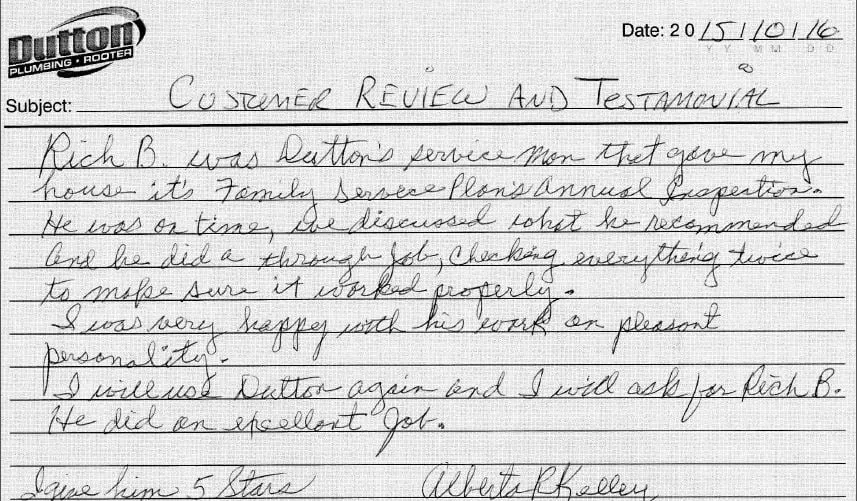 Dutton
PLUMBING • ROOTER
Date: 20 15/10/16
YY MM DD
Subject: CUSTOMER REVIEW AND TESTAMONIAL
Rich B. was Dutton's service man that gave my
house it's Family Service Plan's Annual Inspection.
He was on time, we discussed what he recommended
and he did a through job, checking everything twice
to make sure it worked properly.
I was very happy with his work an pleasant
personality.
I will use Dutton again and I will ask for Rich B.
He did an excellant job.
I give him 5 Stars Alberta R Kelley